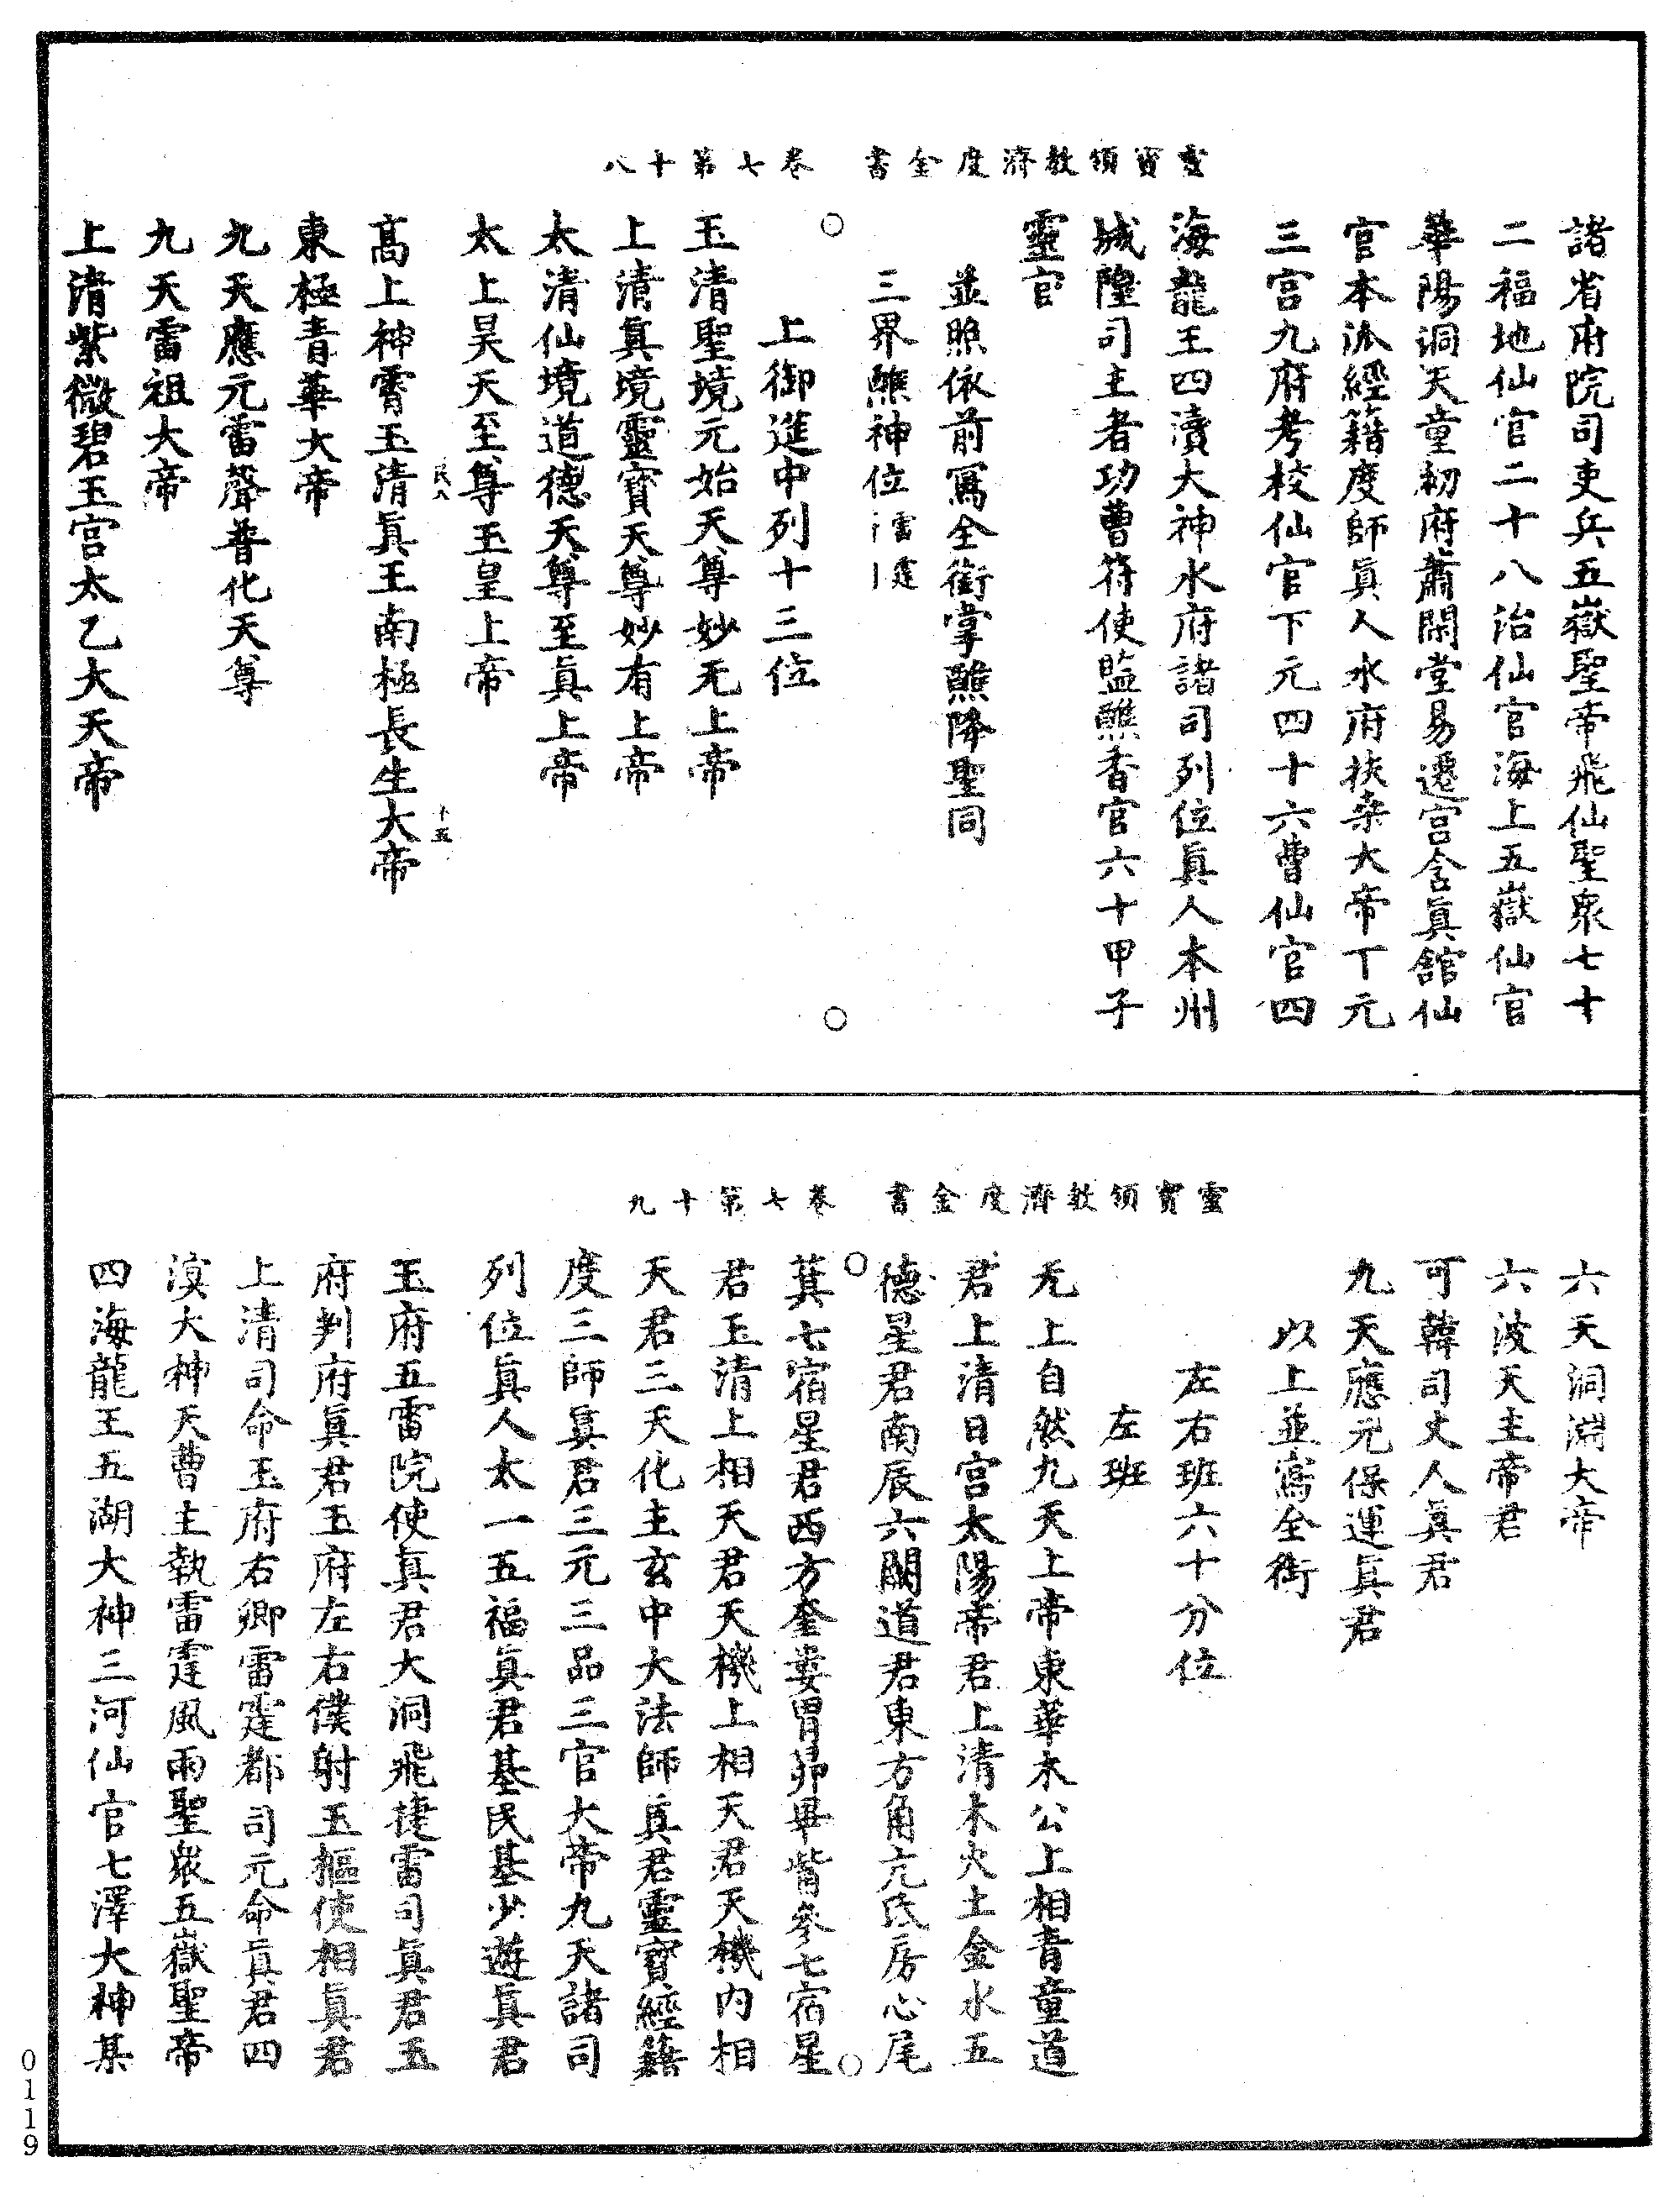 靈寶領教濟度金書　卷七第十八
諸省府院司吏兵五嶽聖帝飛仙聖衆七十
二福地仙官二十八治仙官海上五嶽仙官
華陽洞天童初府蕭閑堂易遷宮含眞館仙
官本派經籍度師眞人水府扶桒大帝丁元
三宮九府考校仙官下元四十六曹仙官四
海龍王四瀆大神水府諸司列位眞人本州
城隍司主者功曹符使監醮香官六十甲子
靈官
並照依前寫全銜掌醮降聖同
三界醮神位
雷霆
上御筵中列十三位
玉清聖境元始天尊妙无上帝
上清眞境靈寶天尊妙有上帝
太清仙境道德天尊至眞上帝
太上昊天至尊玉皇上帝
民八　十五
高上神霄玉清眞王南極長生大帝
東極青華大帝
九天應元雷聲普化天尊
九天雷祖大帝
上清紫微碧玉宮太乙大天帝
靈寶領教濟度金書　卷七第十九
六天洞淵大帝
六波天主帝君
可韓司丈人眞君
九天應元保運眞君
以上並寫全銜
左右班六十分位
左班
无上自然九天上帝東華木公上相青童道
君上清日宮太陽帝君上清木火土金水五
德星君南辰六閣道君東方角亢氐房心尾
箕七宿星君西方奎婁胃昴畢觜參七宿星
君玉清上相天君天機上相天君天機内相
天君三天化主玄中大法師眞君靈寶經籍
度三師眞君三元三品三官大帝九天諸司
列位眞人太一五福眞君基民基少遊眞君
玉府五雷院使眞君大洞飛捷雷司眞君五
府判府眞君玉府左右僕射玉樞使相眞君
上清司命玉府右卿雷霆都司元命眞君四
溟大神天曹主執雷霆風雨聖衆五嶽聖帝
四海龍王五湖大神三河仙官七澤大神某
0119